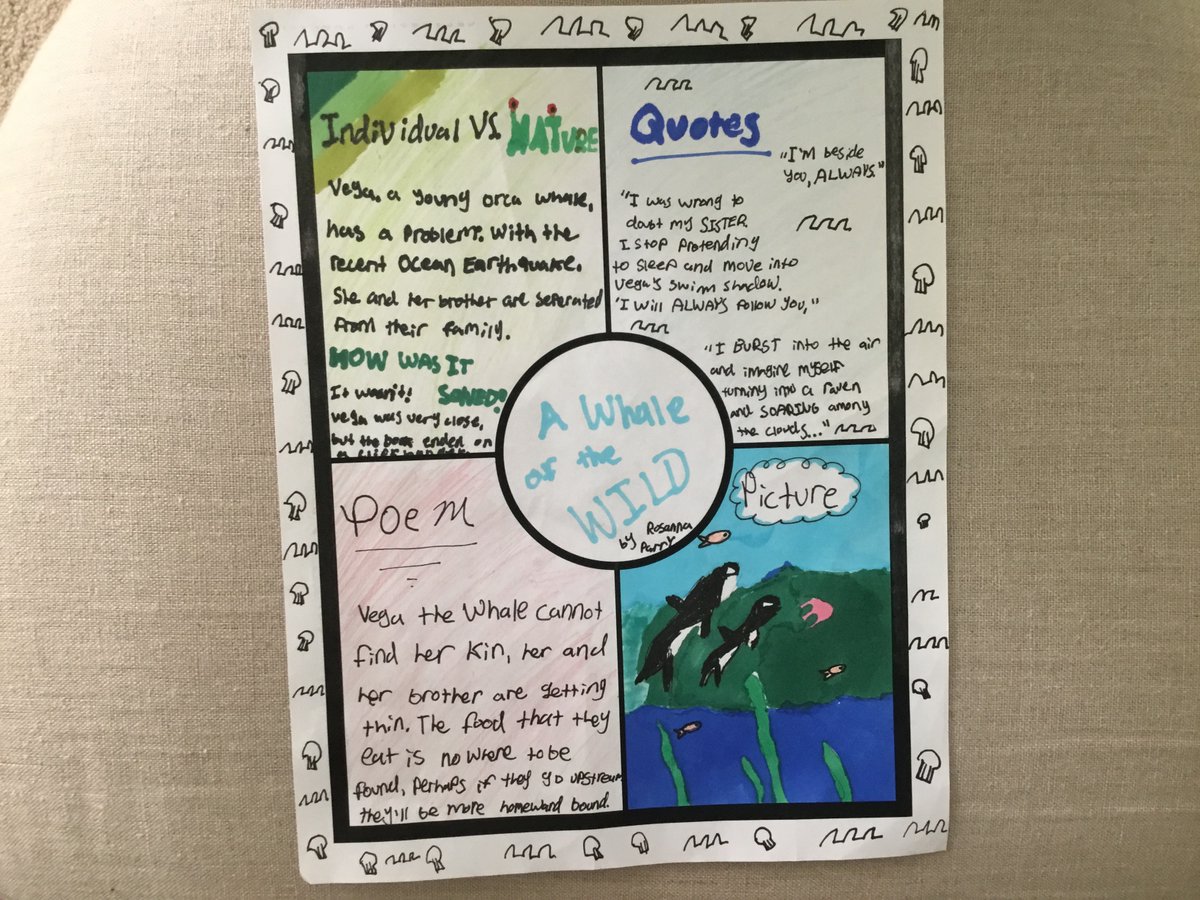 Individual VS NATURE
Vega, a young orca whale,
has a problem. With the
recent Ocean Earthquake.
She and her brother are seperated
from their family.
HOW WAS IT
SOLVED?
It wasn't!
Vega was very close,
but the book ended on
a cliff hanger.
Quotes
"I'M beside
You, ALWAYS."
"I was wrong to
doubt my SISTER.
I stop Pretending
to sleep and move into
Vega's swim shadow.
'I will ALWAYS follow you,"
"I BURST into the air
and imagine myself
turning into a raven
and SOARING among
the clouds..."
A Whale
of the
WILD
by Rosanna
Parry
Poem
Vega the Whale cannot
find her kin, her and
her brother are getting
thin. The food that they
eat is nowhere to be
found, Perhaps if they go upstream
they'll be more homeward bound.
Picture